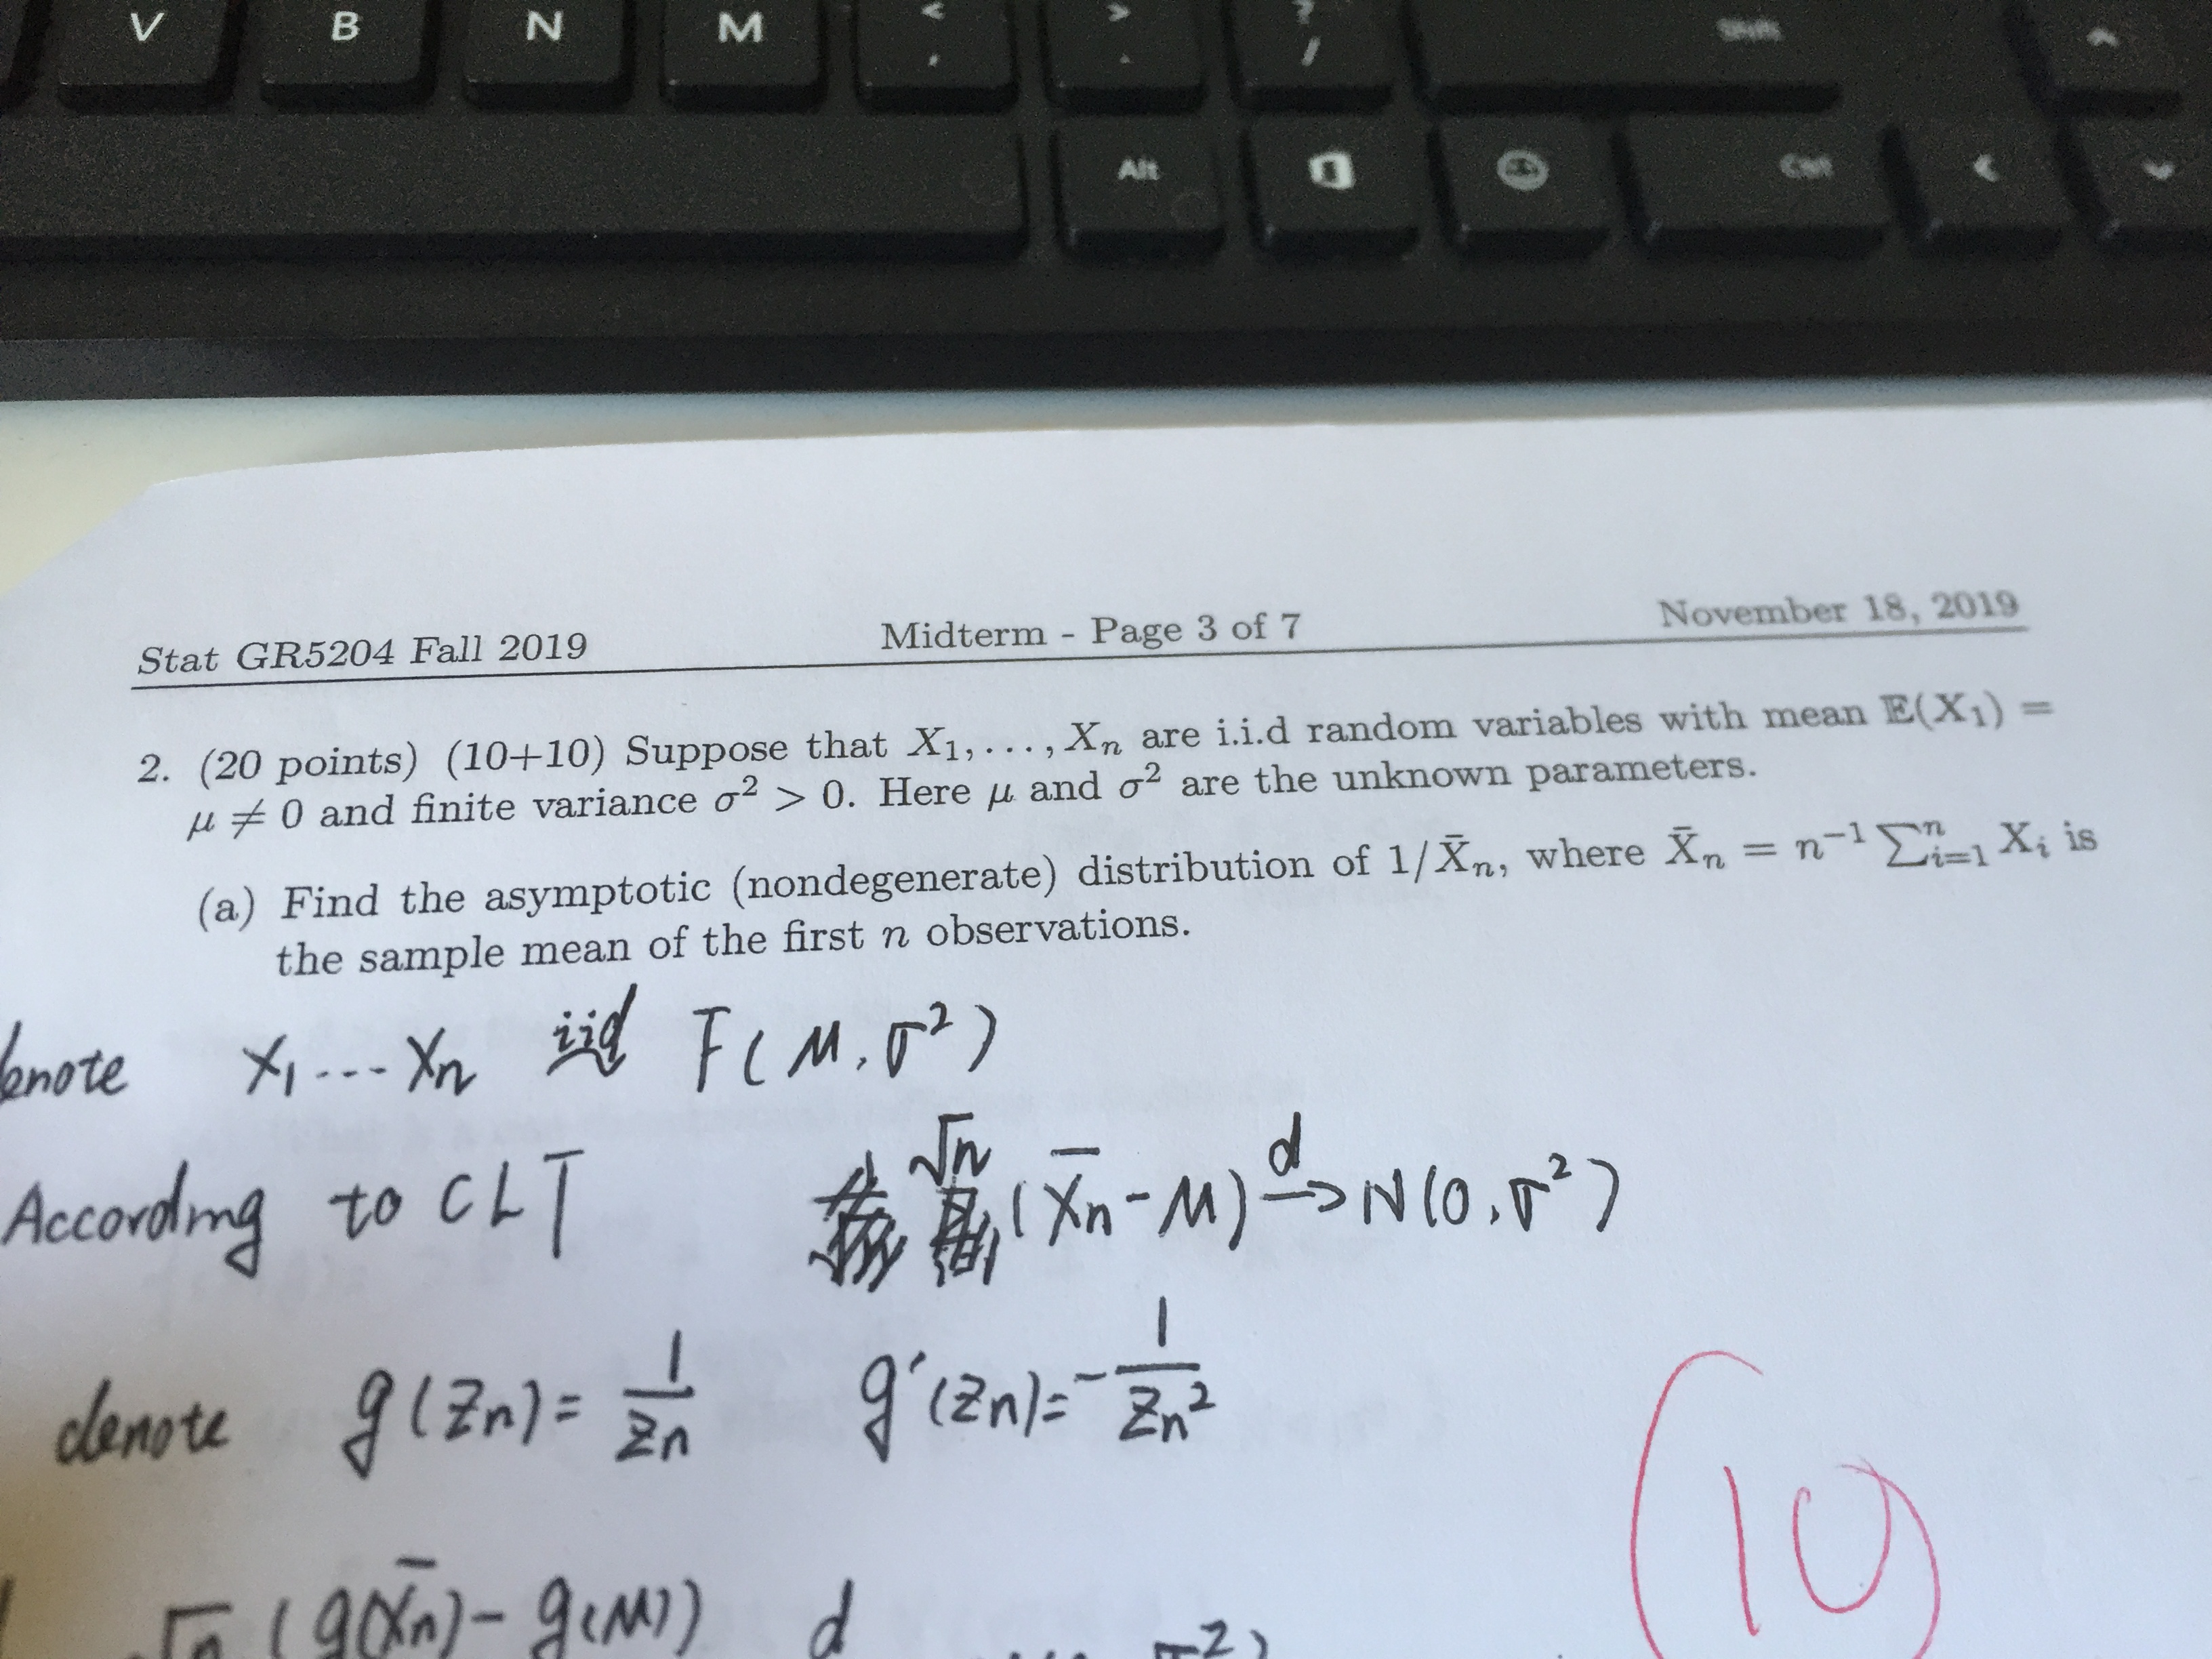 Stat GR5204 Fall 2019 Midterm - Page 3 of 7 November 18, 2019
2. (20 points) (10+10) Suppose that X₁, . . . , Xₙ are i.i.d random variables with mean 𝔼(X₁) =
μ ≠ 0 and finite variance σ² > 0. Here μ and σ² are the unknown parameters.
(a) Find the asymptotic (nondegenerate) distribution of 1/X̄ₙ, where X̄ₙ = n⁻¹ ∑ⁿᵢ₌₁ Xᵢ is
the sample mean of the first n observations.
denote X₁ --- Xₙ iid F(μ, σ²)
According to CLT √n (X̄ₙ - μ) →ᵈ N(0, σ²)
denote g(Zₙ) = 1/Zₙ g'(Zₙ) = - 1/Zₙ²
√n (g(X̄ₙ) - g(μ)) d
10
V B N M
Alt Ctrl Shift